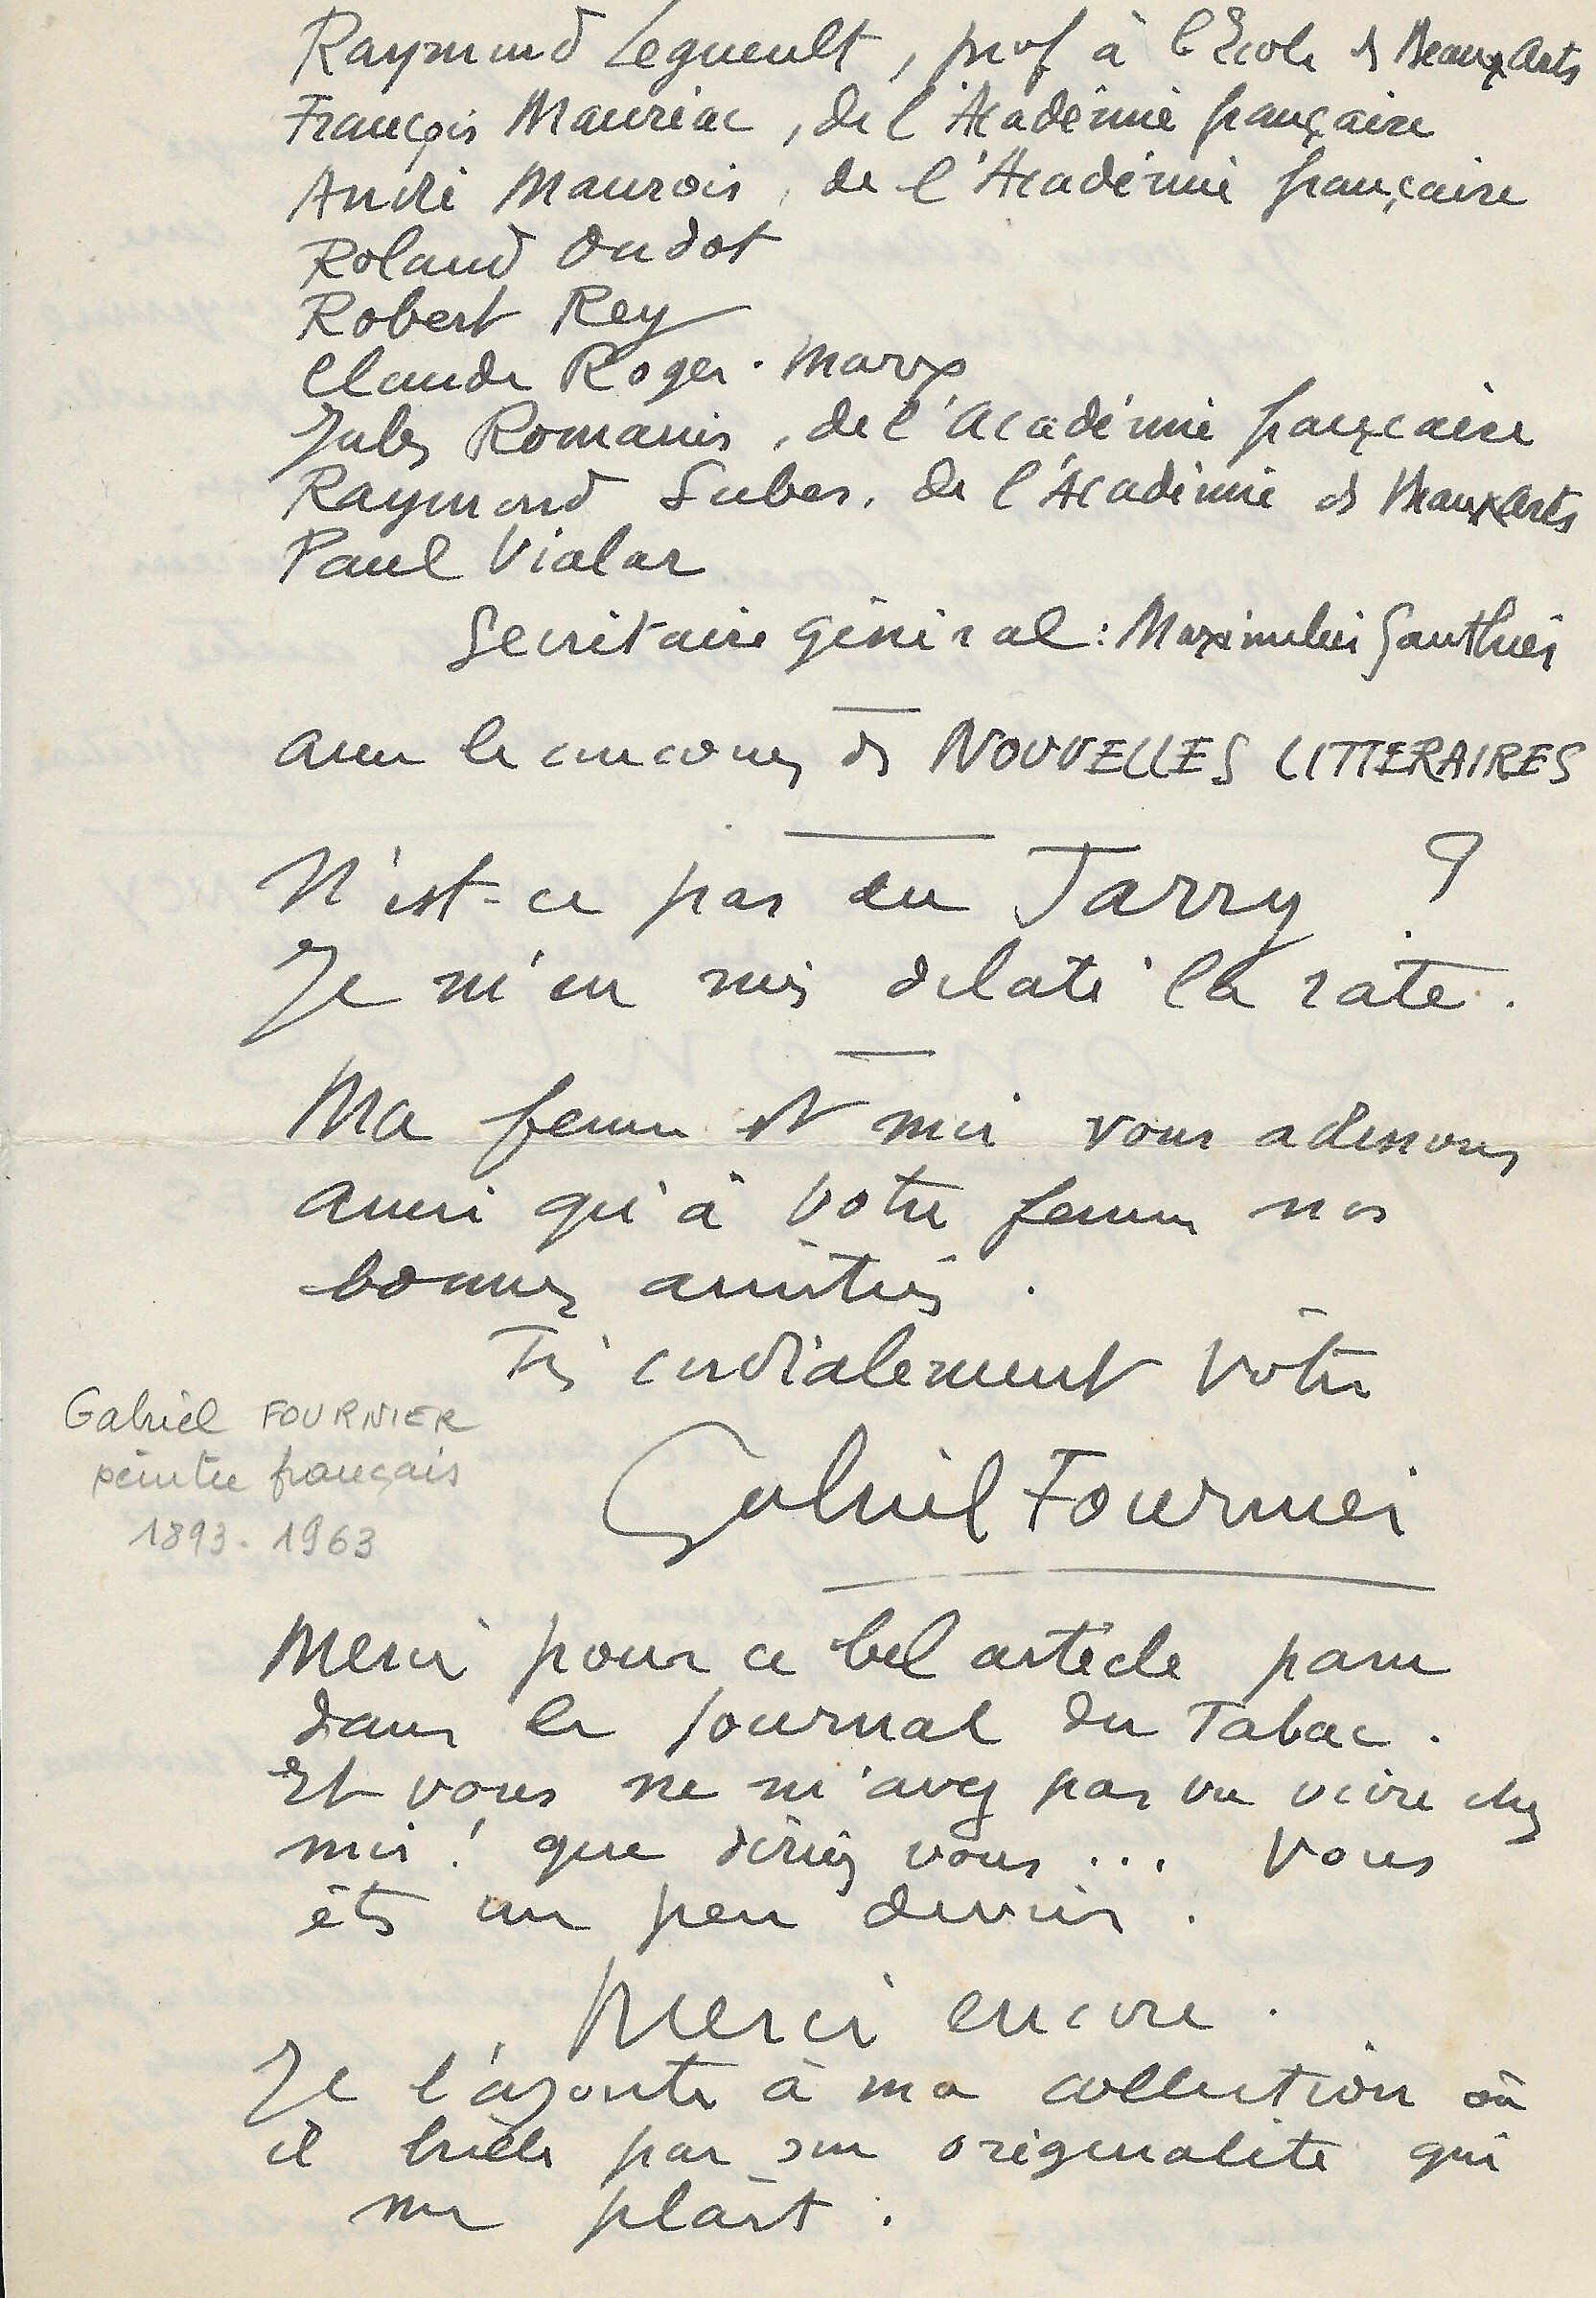 Raymond Legueult, prof à l'Ecole ds Beaux Arts
François Mauriac, de l'Académie française
André Maurois, de l'Académie française
Roland Oudot
Robert Rey
Claude Roger-Marx
Jules Romains, de l'Académie française
Raymond Subes, de l'Académie ds Beaux Arts
Paul Vialar
Secrétaire général : Maximilien Gauthier
avec le concours ds NOUVELLES LITTERAIRES
N'est-ce pas du Jarry ?
Je m'en suis dilaté la rate.
Ma femme et moi vous adressons
ainsi qu'à votre femme nos
bonnes amitiés.
Très cordialement vôtre
Gabriel Fournier
Gabriel FOURNIER
peintre français
1893-1963
Merci pour ce bel article paru
dans le journal du Tabac.
Et vous ne m'avez pas vu vivre chez
moi ! que diriez vous ... Vous
êts un peu devin.
Merci encore.
Je l'ajoute à ma collection où
il brille par son originalité qui
me plaît.